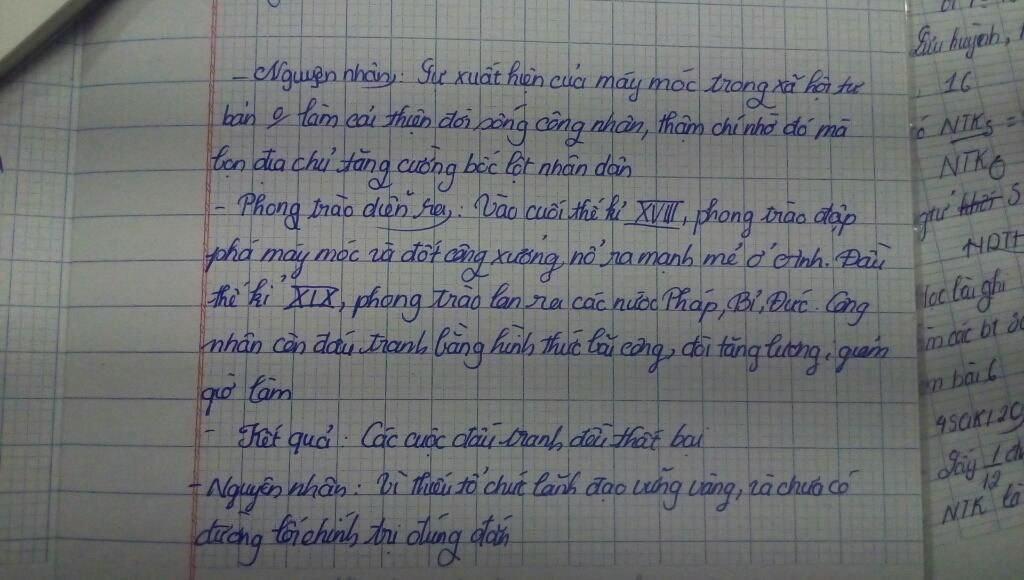 - Nguyên nhân: Sự xuất hiện của máy móc trong xã hội tư
bản ko làm cải thiện đời sống công nhân, thậm chí nhờ đó mà
bọn địa chủ tăng cường bóc lột nhân dân
- Phong trào diễn ra: Vào cuối thế kỉ XVIII, phong trào đập
phá máy móc và đốt công xưởng nổ ra mạnh mẽ ở Anh. Đầu
thế kỉ XIX, phong trào lan ra các nước Pháp, Bỉ, Đức. Công
nhân còn đấu tranh bằng hình thức bãi công, đòi tăng lương, giảm
giờ làm
- Kết quả: Các cuộc đấu tranh đều thất bại
- Nguyên nhân: Vì thiếu tổ chức lãnh đạo vững vàng, và chưa có
đường lối chính trị đúng đắn
lưu huỳnh,
16
NTKs =
NTKo
giữ khối S
đọc lại ghi
bài 6
4SGK/20
lấy 1
12
NTK là